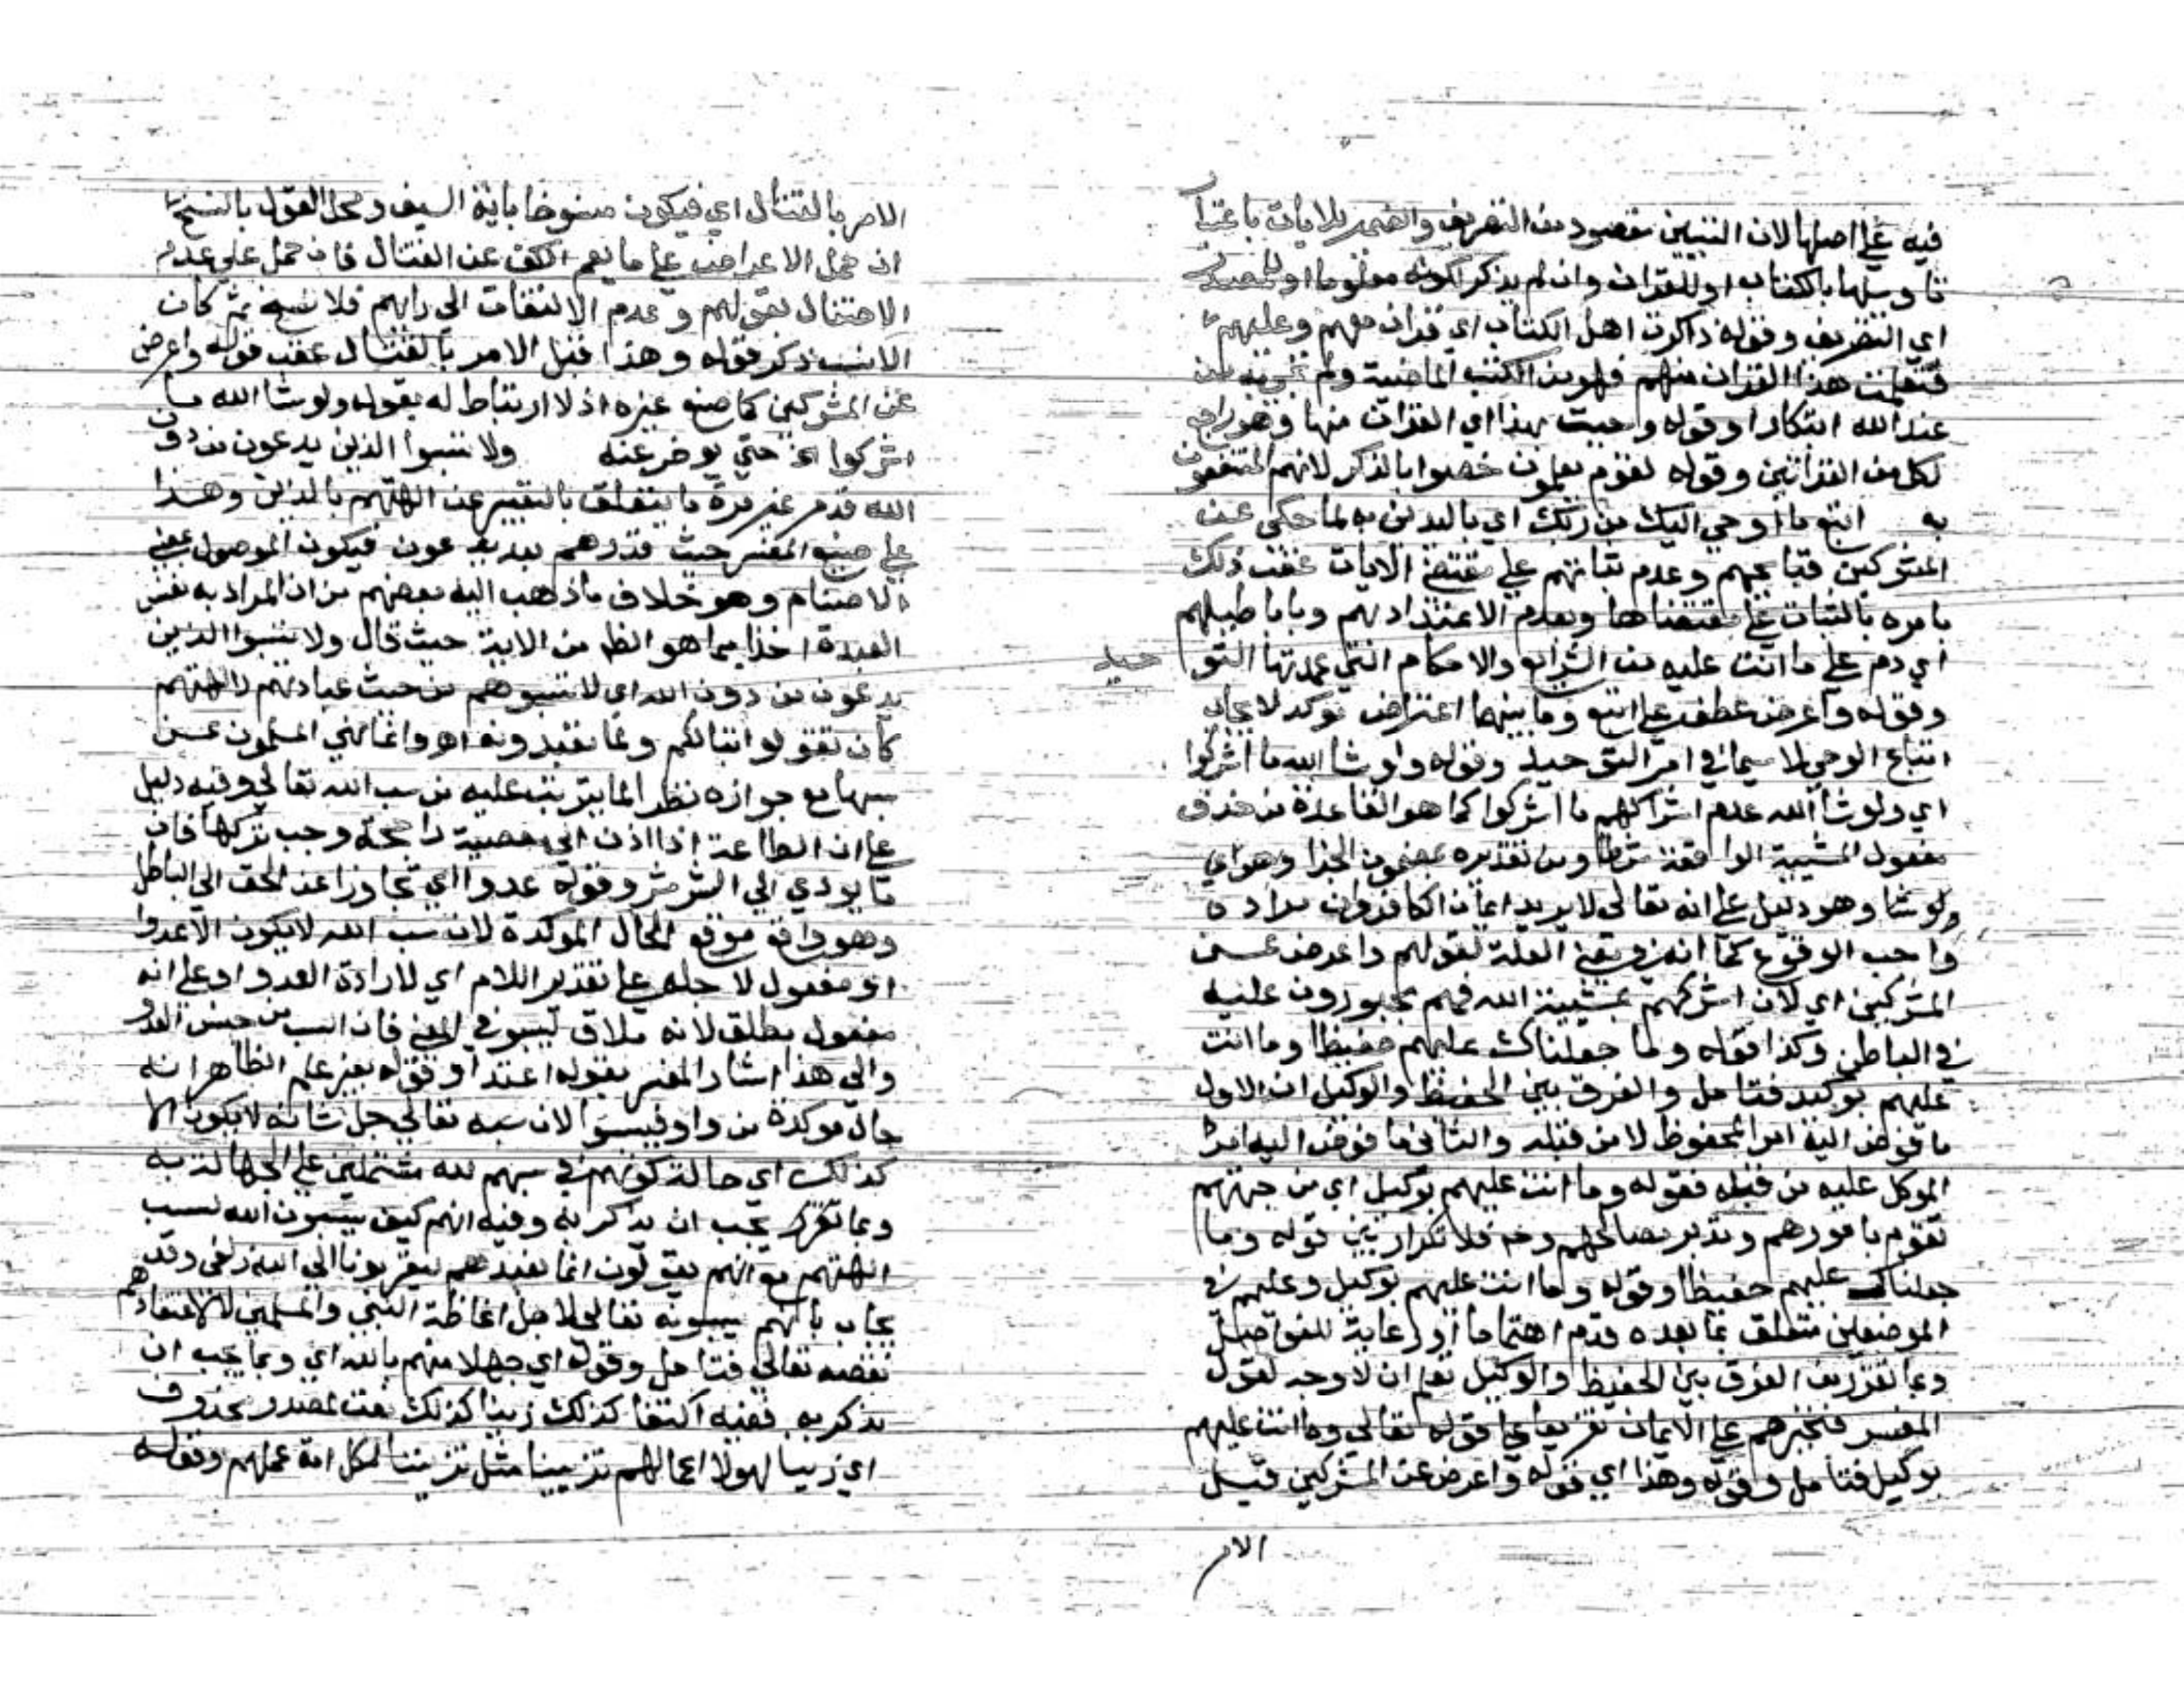 فيه على اصلها لان التبيين مقصود من التصريف والضمير للايات باعتبار
تاويلها بالكتاب او للقران وان لم يذكر لكونه معلوما او للمصدر
اي التصريف وقوله ذاكرت اهل الكتاب اي قرات معهم وعليهم
فتعلمت هذا القران منهم فهو من الكتب الماضية ولم تجي به من
عند الله ابتكارا وقوله وجيت بهذا اي القران منها وهو راجع
لكل من القراتين وقوله لقوم يعلمون خصوا بالذكر لانهم المنتفعون
به اتبع ما اوحي اليك من ربك اي بالتدين به لما حكى عن
المشركين قبايحهم وعدم ثباتهم على مقتضى الايات عقب ذلك
بامره بالثبات على مقتضاها وبعدم الاعتداد بهم وباباطيلهم
اي دم على ما انت عليه من الشرايع والاحكام التي عمدتها التو حيد
وقوله واعرض عطف على اتبع وما بينهما اعتراض موكد لايجاب
اتباع الوحي لا سيما في امر التوحيد وقوله ولو شا الله ما اشركوا
اي ولو شا الله عدم اشراكهم ما اشركوا كما هو القاعدة من حذف
مفعول المشيية الواقعة شرطا ومن تقديره بمضمون الجزا وهو اي
ولو شا وهو دليل على انه تعالى لا يريد ايمان الكافر وان مراده
واجب الوقوع كما انه في معنى العلة لقولهم واعرض عن
المشركين اي لان اشركهم بمشيية الله فهم مجبورون عليه
في الباطن وكذا قوله وما جعلناك عليهم حفيظا وما انت
عليهم بوكيد فتامل والفرق بين الحفيظ والوكيل ان الاول
ما فوض اليه امر المحفوظ لا من قبله والثاني ما فوض اليه امر
الموكل عليه من قبله فقوله وما انت عليهم بوكيل اي من جهتهم
تقوم بامورهم وتدبر مصالحهم وح فلا تكرار بين قوله وما
جعلناك عليهم حفيظا وقوله وما انت عليهم بوكيل وعليهم في
الموضعين متعلق بما بعده قدم اهتماما او رعاية للفواصل
وبما تقرر من الفرق بين الحفيظ والوكيل تعلم ان لا وجه لقول
المفسر فتجبرهم على الايمان تفريعا على قوله تعالى وما انت عليهم
بوكيل فتامل وقوله وهذا اي قوله واعرض عن المشركين قبل
الامر
الامر بالقتال اي فيكون منسوخا باية السيف ومحل القول بالنسخ
ان حمل الاعراض على ما يعم الكف عن القتال فان حمل على عدم
الاحتفال بقولهم وعدم الالتفات الى رايهم فلا نسخ ثم كان
الانسب ذكر قوله وهذا قبل الامر بالقتال عقب قوله واعرض
عن المشركين كما صنع غيره اذ لا ارتباط له بقوله ولو شا الله ما
اشركوا الخ حتى يوخر عنه ولا تسبوا الذين يدعون من دون
الله قدم غير مرة ما يتعلق بالتعبير عن الهتهم بالذين وهذا
على صنيع المفسر حيث قدر هم بعد يدعون فيكون الموصول بمعنى
الاصنام وهو خلاف ما ذهب اليه بعضهم من ان المراد به نفس
العبدة اخذا مما هو الظ من الاية حيث قال ولا تسبوا الذين
يدعون من دون الله اي لا تسبوهم من حيث عبادتهم لالهتهم
كان تقولوا تبا لكم ولما تعبدونه اهـ وانما نهي المسلمون عن
سبها مع جوازه نظرا لما يترتب عليه من سب الله تعالى وفيه دليل
على ان الطاعة اذا ادت الى معصية راجحة وجب تركها فان
ما يودي الى الشر شر وقوله عدوا اي تجاوزا عن الحق الى الباطل
وهو واقع موقع الحال الموكدة لان سب الله لا يكون الا عدوا
او مفعول لاجله على تقدير اللام اي لارادة العدو او على انه
مفعول مطلق لانه ملاق ليسبوا في المعنى فان السب من جنس العدو
والى هذا اشار المفسر بقوله اعتدا وقوله بغير علم الظاهر انه
حال موكدة من واو فيسبوا لان سبه تعالى جل شانه لا يكون الا
كذلك اي حالة كونهم في سبهم لله مشتملين على الجهالة به
وبما تقرر يجب ان يذكر به وفيه انهم كيف يسبون الله لسب
الهتهم مع انهم يقولون انما نعبدهم ليقربونا الى الله زلفى وقد
يجاب بانهم يسبونه تعالى لاجل اغاظة النبي والمسلمين لا لاعتقادهم
نقصه تعالى فتامل وقوله اي جهلا منهم بالله اي وبما يجب ان
يذكر به ففيه اكتفا كذلك زينا كذلك نعت لمصدر محذوف
اي زينا لهولا اعمالهم تزيينا مثل تزييننا لكل امة عملهم وقوله